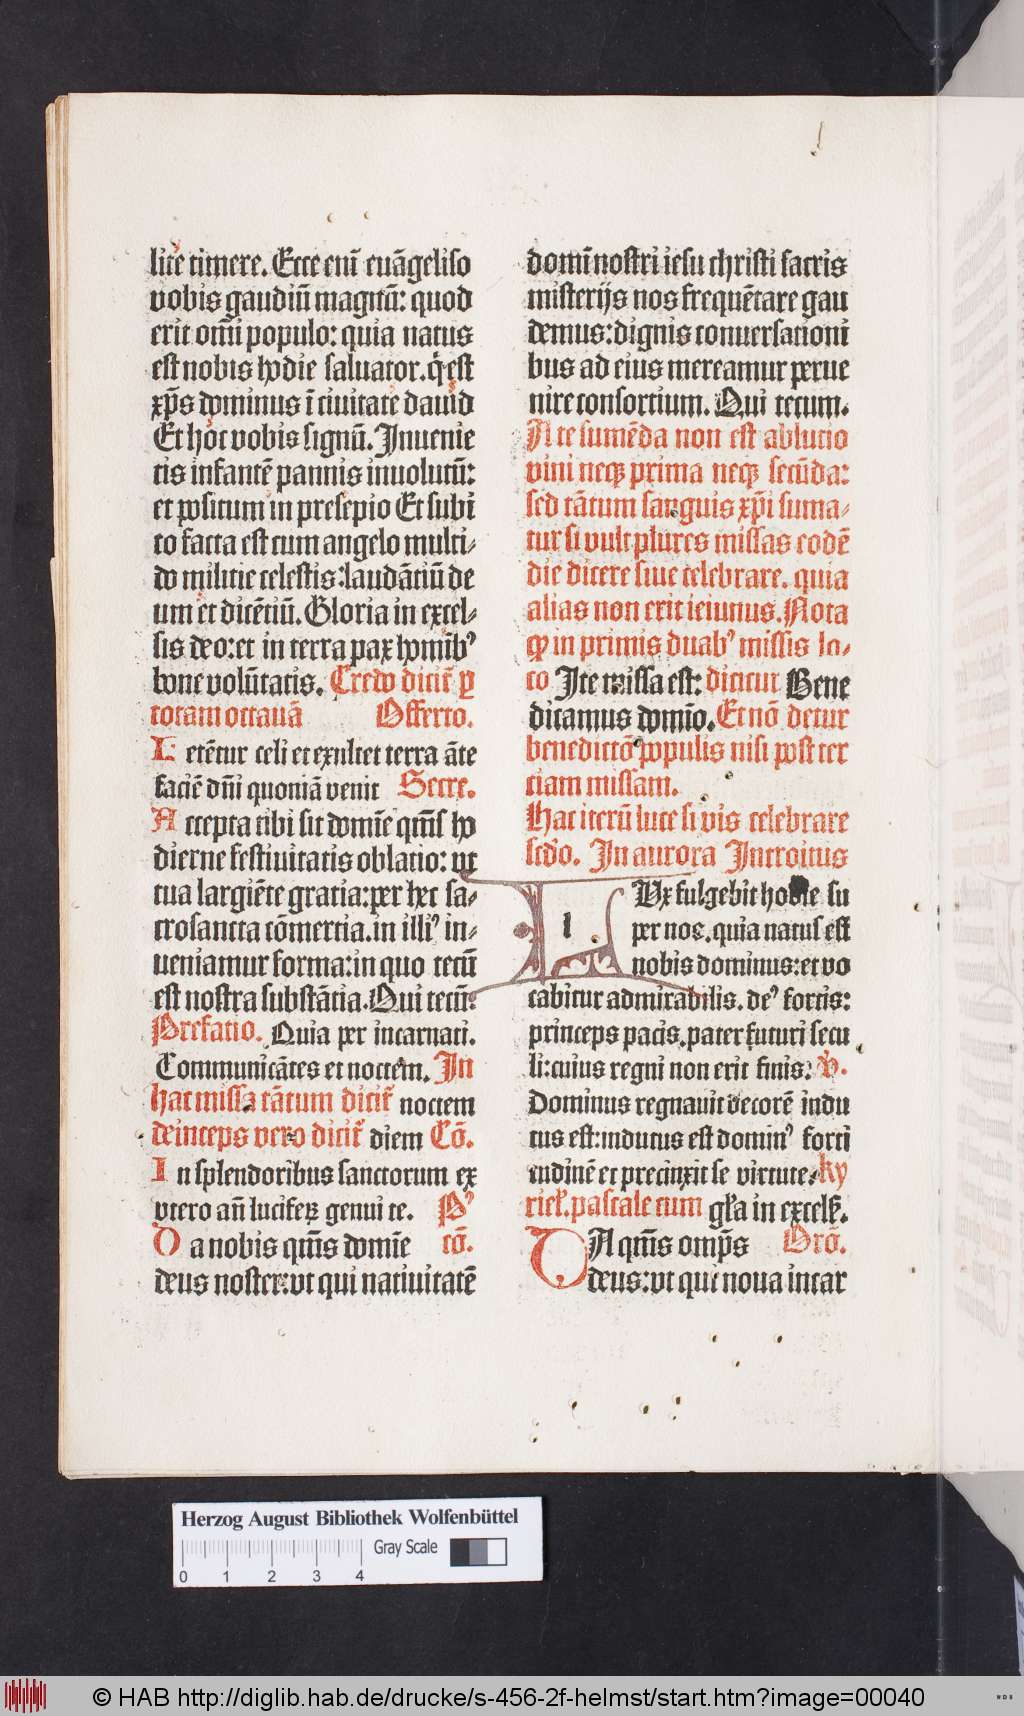 lite timere. Ecce eni̅ eua̅geliso
vobis gaudiu̅ magnu̅: quod
erit omi̅ populo: quia natus
est nobis hodie saluator. q̇ est
xp̅s dominus i̅ ciuitate dauid
Et hoc vobis signu̅. Inuenie
tis infante̅ pannis inuolutu̅:
et positum in presepio Et subi
to facta est cum angelo multi⸗
do militie celestis: lauda̅tiu̅ de
um et dice̅tiu̅. Gloria in excel⸗
sis deo: et in terra pax homib⁹
bone volu̅tatis. Credo dicit̅ ꝑ
totam octaua̅ Offerto.
Lete̅tur celi et exultet terra a̅te
facie̅ dn̅i quonia̅ venit Secre.
Accepta tibi sit domi̅e qm̅s ho
dierne festiuitatis oblatio: ut
tua largie̅te gratia: per hec sa⸗
crosancta co̅mertia. in illi⁹ in⸗
ueniamur forma: in quo tecu̅
est nostra substa̅tia. Qui tecu̅.
Prefatio. Quia per incarnati.
Communica̅tes et noctem. In
hac missa ta̅tum dicit̅ noctem
deinceps vero dicit̅ diem Co̅.
In splendoribus sanctorum ex
vtero an̅ luciferꝝ genui te. P⁹
Da nobis qm̅s domi̅e co̅.
deus noster: vt qui natiuitate̅
domi̅ nostri iesu christi sacris
misterijs nos freque̅tare gau
demus: dignis conuersationi
bus ad eius mereamur perue
nire consortium. Qui tecum.
Ante sume̅da non est ablutio
vini neqꝫ prima neqꝫ secu̅da:
sed ta̅tum sanguis xp̅i suma⸗
tur si vult plures missas eode̅
die dicere siue celebrare. quia
alias non erit ieiunus. Nota
ꝙ in primis duab⁹ missis lo⸗
co Ite missa est: dicitur Bene
dicamus domi̅o. Et no̅ detur
benedicto̅ populis nisi post ter
tiam missam.
Hac iteru̅ luce si vis celebrare
scd̅o. In aurora Introitus
LUx fulgebit hodie su
per nos. quia natus est
nobis dominus: et vo
cabitur admirabilis. de⁹ fortis:
princeps pacis. pater futuri secu
li: cuius regni non erit finis. V̊.
Dominus regnauit decore̅ indu
tus est: indutus est domin⁹ forti
tudine̅ et precinxit se virtute. ky
riel̅. pascale cum gl̅a in excels̅.
DA qm̅s omp̅s Oro̅.
deus: vt qui noua incar
Herzog August Bibliothek Wolfenbüttel
Gray Scale
0 1 2 3 4
© HAB http://diglib.hab.de/drucke/s-456-2f-helmst/start.htm?image=00040